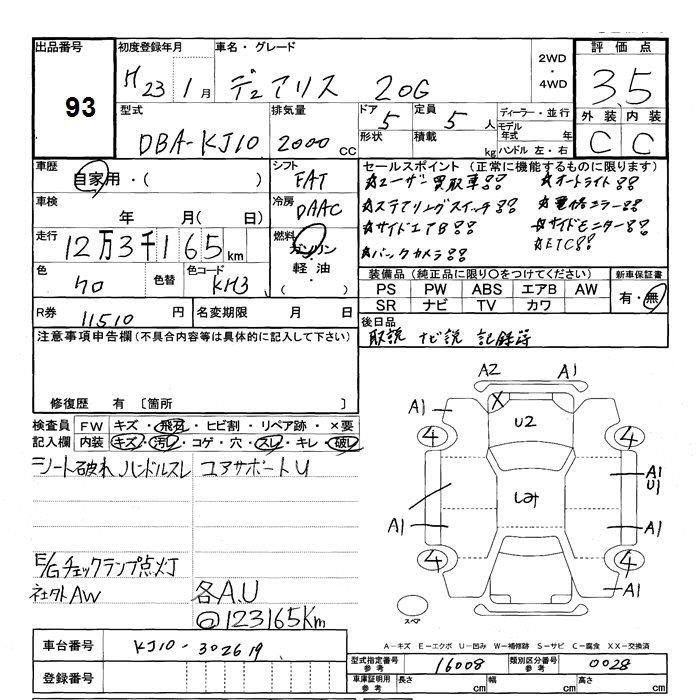 出品番号 初度登録年月 車名・グレード 2WD ・ 4WD 評価点
93 H23年1月 デュアリス 20G 3.5
型式 排気量 ドア 定員 ディーラー・並行 外装 内装
DBA-KJ10 2000cc 5 5人 モデル年式 年 C C
形状 積載 kg ハンドル 左・右
車歴 自家用・( ) シフト FAT セールスポイント(正常に機能するものに限ります)
☆ユーザー買取車!! ☆オートライト!!
車検 年 月(日) 冷房 DAAC ☆ステアリングスイッチ!! ☆電格ミラー!!
走行 12万3千165km 燃料 ガソリン・軽油・( ) ☆サイドエアB!! ☆サイドモニター!!
☆バックカメラ!! ☆ETC!!
色 クロ 色替 色コード KH3 装備品(純正品に限り○をつけてください) 新車保証書
PS PW ABS エアB AW 有・無
SR ナビ TV カワ
R券 11510円 名変期限 月 日 後日品
取説 ナビ説 記録簿
注意事項申告欄(不具合内容等は具体的に記入して下さい)
修復歴 有 〔箇所 〕
検査員記入欄 FW キズ・飛石・ヒビ割・リペア跡・×要
内装 キズ・汚レ・コゲ・穴・スレ・キレ・破レ
シート破れ ハンドルスレ コアサポートU
E/Gチェックランプ点灯
社外AW 各A.U
@123165Km
A2 A1
A1 X U2
4 4
しみ A1 U1
A1 A1
4 4
A1
スペア
A-キズ E-エクボ U-凹み W-補修跡 S-サビ C-腐食 XX-交換済
車台番号 KJ10-302619 型式指定番号 参考 16008 類別区分番号 参考 0028
登録番号 車庫証明用 参考 長さ cm 幅 cm 高さ cm